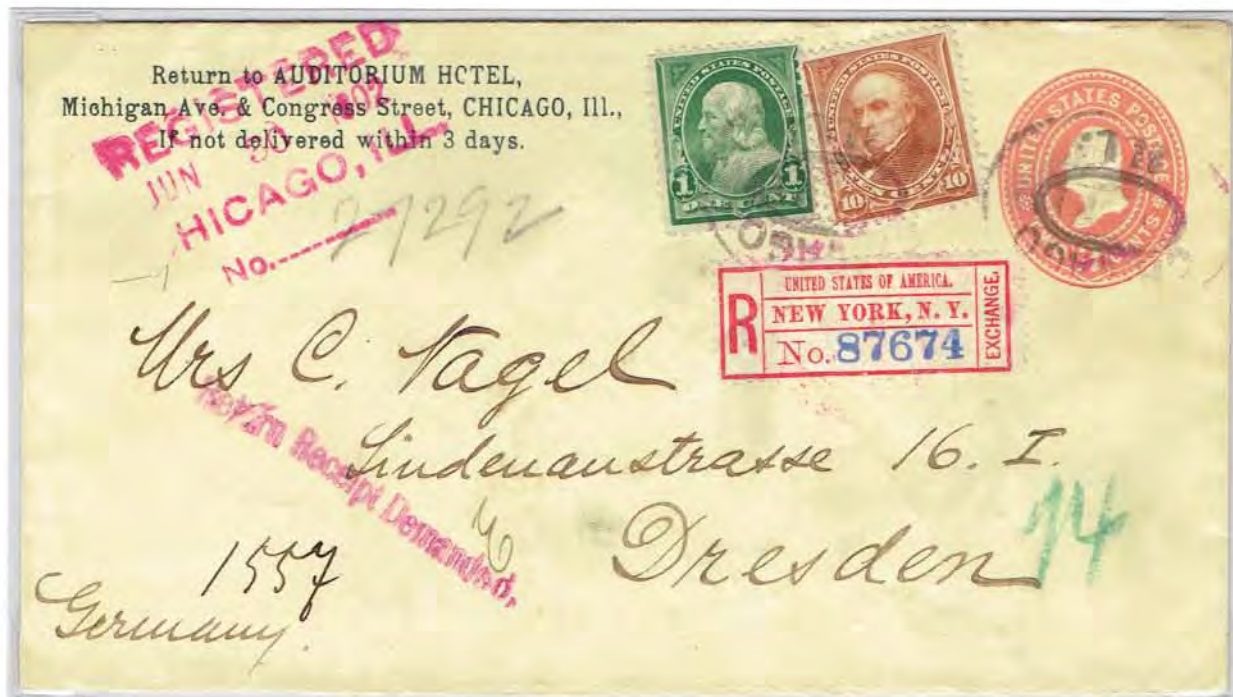 Return to AUDITORIUM HOTEL,
Michigan Ave. & Congress Street, CHICAGO, Ill.,
If not delivered within 3 days.
REGISTERED
JUN 30 1902
CHICAGO, ILL.
No. 27292
UNITED STATES POSTAGE
1 1
ONE CENT
UNITED STATES POSTAGE
10 TEN CENTS 10
UNITED STATES POSTAGE
TWO CENTS
R
UNITED STATES OF AMERICA.
NEW YORK, N. Y.
No. 87674
EXCHANGE.
Mrs C. Nagel
Lindenaustrasse 16. I.
Dresden
Return Receipt Demanded.
74
1557
Germany.